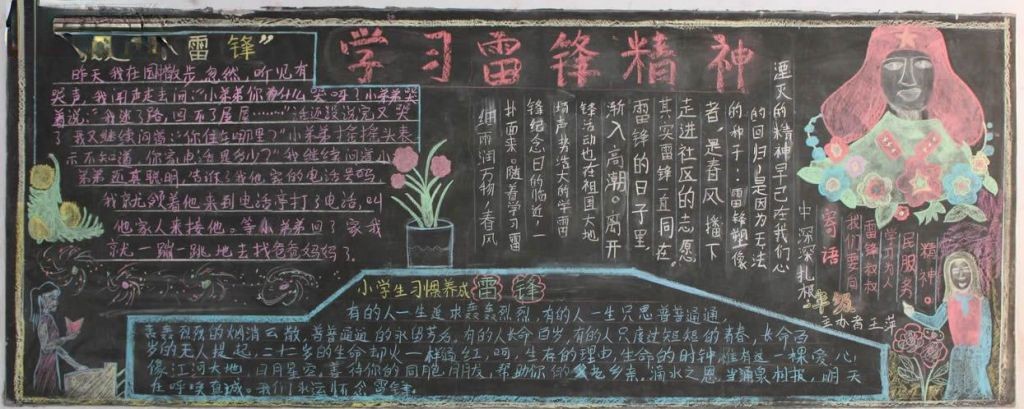 学习雷锋精神
雷锋”
昨天我在园散步,忽然,听见有
哭声,我闻声走去问:“小弟弟你为什么哭呀?”小弟弟哭
着说:“我迷了路,回不了屋层……”话还没说完又哭
了我又继续问着:“你住在哪里?”小弟弟摇摇头表
示不知道,你家电话是多少?”我继续问道小
弟弟还真聪明,告诉了我他家的电话号码
我就领着他来到电话亭打了电话,叫
他家人来接他。等小弟弟回了家我
就一蹦一跳地去找爸爸妈妈了。
细雨润万物,春风
扑面来。随着学习雷
锋纪念日的临近,一
场声势浩大的学雷
锋活动也在祖国大地
渐入高潮。离开
雷锋的日子里,
其实雷锋一直同在。
走进社区的志愿
者,是春风播下
的种子;雷锋塑像
的回归,是因为无法
湮灭的精神早已在我们心
中深深扎根
寄语
我们要向
雷锋叔叔
学习为人
民服务
精神。
小学生习惯养成 雷锋
有的人一生追求轰轰烈烈,有的人一生只思普普通通
轰轰烈烈的烟消云散,普普通通的永留芳名,有的人长命百岁,有的人只度过短短的青春,长命百
岁的无人提起,二十二岁的生命却火一样红,呵,生存的理由,生命的时钟唯有这一棵爱心,
像江河大地,日月星空,善待你的同胞朋友,帮助你的父老乡亲。滴水之恩当涌泉相报,明天
在呼唤真诚。我们永远怀念雷锋。